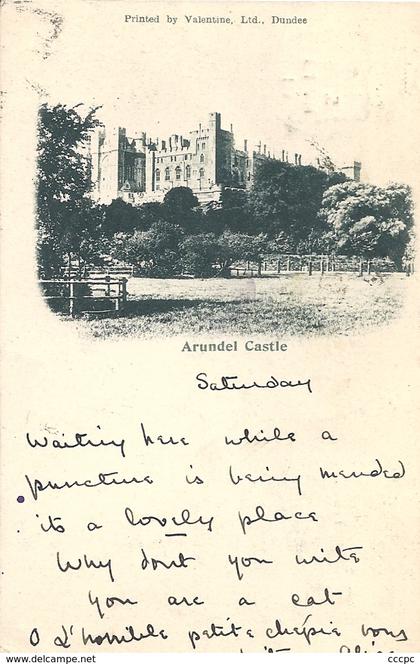 Printed by Valentine, Ltd., Dundee
Arundel Castle
Saturday
Waiting here while a
puncture is being mended
its a lovely place
Why don't you write
you are a cat
O L'horrible petite vous
cccpc